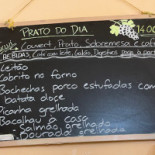 PRATO DO DIA 14.00
Couvert, Prato, Sobremesa e café
BEBIDAS
Leitão
Cabrito no forno
Bochechas porco estufadas com
batata doce
Picanha grelhada
Bacalhau a casa
Salmão grelhado
Dourada grelhada